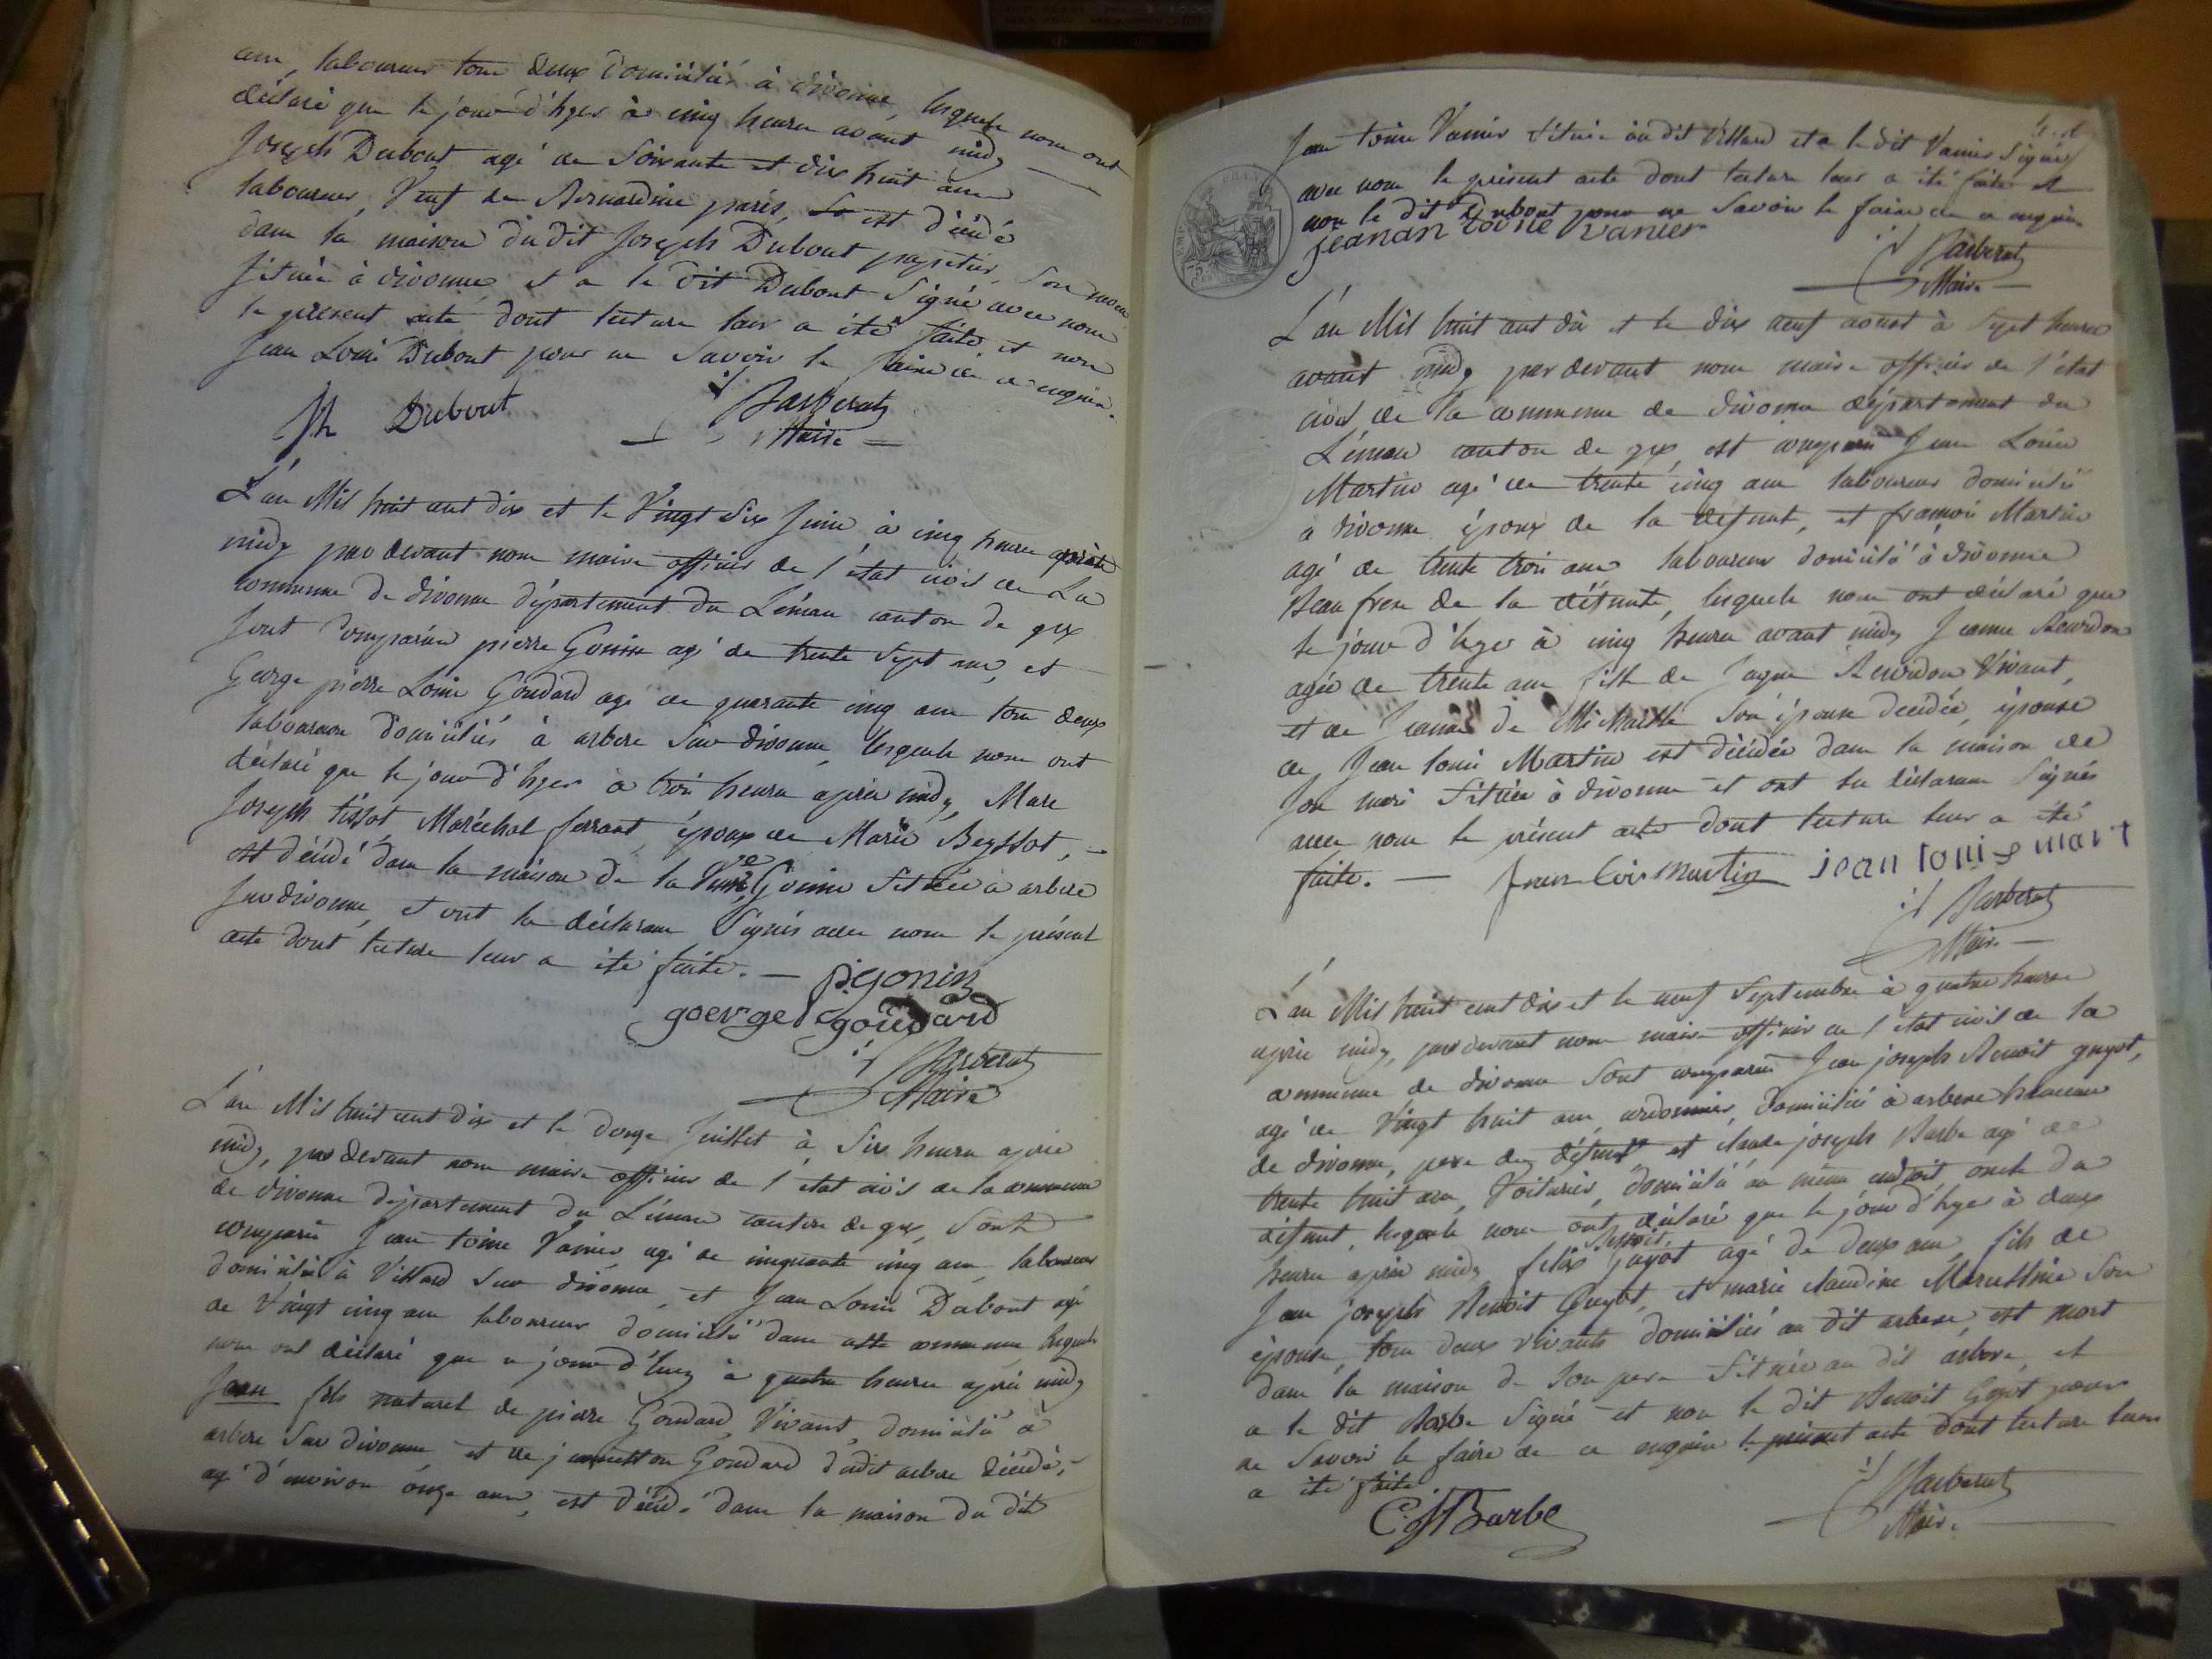 ans, laboureur tous deux domiciliés à divonne, lesquels nous ont
déclaré que le jour d'hyer à cinq heures avant midy
Joseph Dubout agé de Soixante et dix huit ans
laboureur, Veuf de Bernardine paris, est décédé
dans la maison du dit Joseph Dubout papetier, Son neveu
Située à divonne, et a le dit Dubout Signé avec nous
le present acte dont lecture leur a été faite et non
Jean Louis Dubout pour ne Savoir le faire de ce enquis.
Jh Dubout
Barberat
Maire
L'an Mil huit cent dix et le Vingt Six Juin à cinq heures après
midy par devant nous maire officier de l'état civil de La
commune de divonne département du Léman canton de gex
Sont comparus pierre Gonin agé de trente Sept ans, et
George pierre Louis Goudard agé de quarante cinq ans tous deux
laboureurs domiciliés à arbere Sur divonne, lesquels nous ont
déclaré que le jour d'hyer à trois heures après midy, Marc
Joseph tissot Maréchal ferrant, époux de Marie Beyssot,
est décédé dans la maison de la Veuve Gonin Située à arbere
Sur divonne, et ont les déclarans Signés avec nous le présent
acte dont lecture leur a été faite. — p. gonin
goerge goudard
Barberat
Maire
L'an Mil huit cent dix et le douze Juillet à Six heures après
midy, par devant nous maire officier de l'état civil de la commune
de divonne département du Léman canton de gex, Sont
comparus Jean toine Vanier agé de cinquante cinq ans, laboureur
domicilié à Villard Sur divonne, et Jean Louis Dubout agé
de Vingt cinq ans laboureur domicilié dans cette commune, lesquels
nous ont déclaré que ce jour d'huy à quatre heures après midy
Jean fils naturel de pierre Goudard, Vivant, domicilié à
arbere Sur divonne, et de jeanetton Goudard dudit arbere décédé,
agé d'environ onze ans, est décédé dans la maison du dit
Jean toine Vanier Située au dit Villard et a le dit Vanier Signé
avec nous le présent acte dont lecture leur a été faite et
non le dit Dubout pour ne Savoir le faire de ce enquis
jeanan toine vanier
Barberat
Maire
L'an Mil huit cent dix et le dix neuf aoust à Sept heures
avant midy par devant nous maire officier de l'état
civil de la commune de divonne département du
Léman canton de gex, est comparu Jean Louis
Martin agé de trente cinq ans laboureur domicilié
a divonne époux de la defunte, et françois Martin
agé de trente trois ans laboureur domicilié à divonne
Beau frere de la défunte, lesquels nous ont déclaré que
le jour d'hyer à cinq heures avant midy Jeanne
agée de trente ans fille de Jaque Vivant,
et de Jeanne de Son épouse decédée, épouse
de Jean louis Martin est décédée dans la maison de
Son mari Située à divonne et ont les déclarans Signés
avec nous le présent acte dont lecture leur a été
faite. — Jean Louis Martin jean louis mart
Barberat
Maire
L'an Mil huit cent dix et le neuf Septembre à quatre heures
après midy, par devant nous maire officier de l'état civil de la
commune de divonne Sont comparus Jean joseph Benoit guyot,
agé de Vingt huit ans, cordonnier, domicilié à arbere hameau
de divonne, pere du défunt et claude joseph Barbe agé de
trente huit ans, Voiturier, domicilié au même endroit, oncle du
défunt, lesquels nous ont déclaré que le jour d'hyer à deux
Benoit,
heures après midy félix guyot agé de deux ans, fils de
Jean joseph Benoit Guyot, et marie claudine Son
épouse, tous deux vivants domiciliés au dit arbere, est mort
dans la maison de Son pere Située au dit arbere, et
a le dit Barbe Signé et non le dit Benoit Guyot pour
ne Savoir le faire de ce enquis le présent acte dont lecture leur
a été faite
C. J Barbe
Barberat
Maire